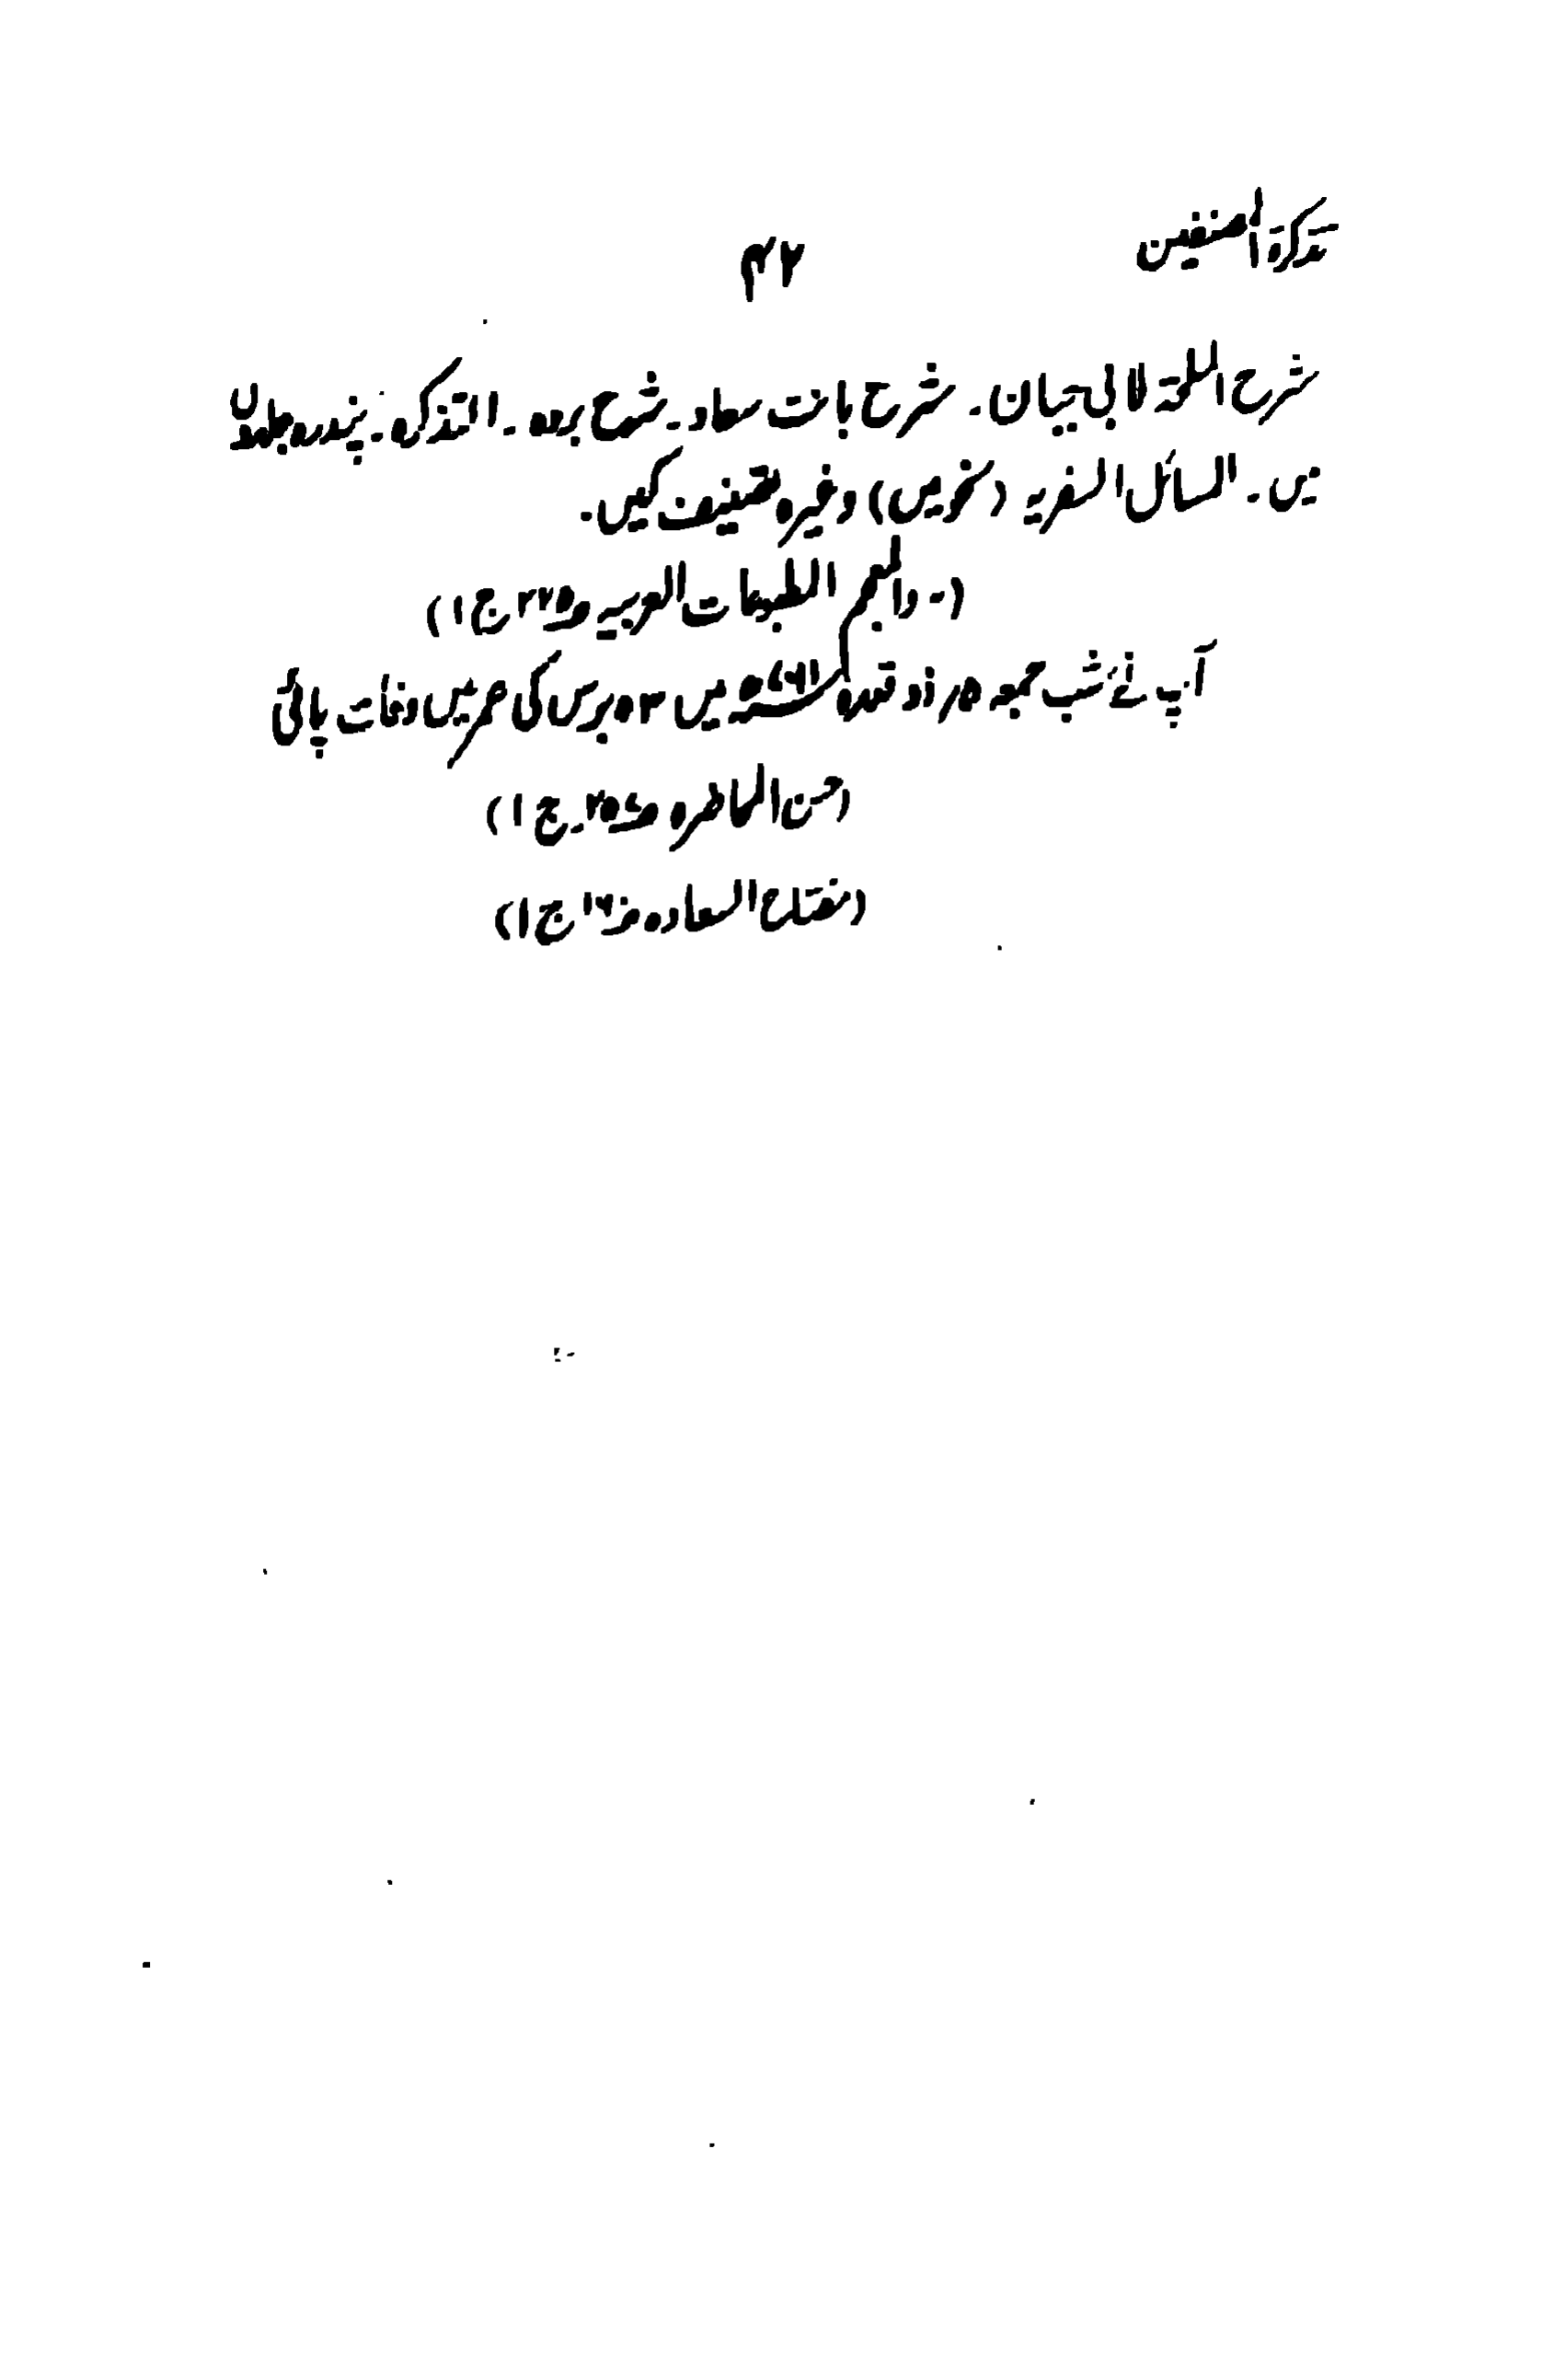 تذکرۃ المصنفین
۴۶
شرح اللمحۃ لابی حیان۔ شرح بانت سعاد۔ شرح بردہ۔ التذکرہ۔ پندرہ جلدوں
میں۔ المسائل السفریہ (نحو میں) وغیرہ تصنیف کیں۔
(معجم المطبوعات العربیہ ج ۱)
آپ نے شب جمعہ ۵ر ذو قعدہ ۷۶۱ھ میں ۵۳ برس کی عمر میں وفات پائی
(حسن المحاضرہ ج ۱)
(مفتاح السعادہ ج ۱)